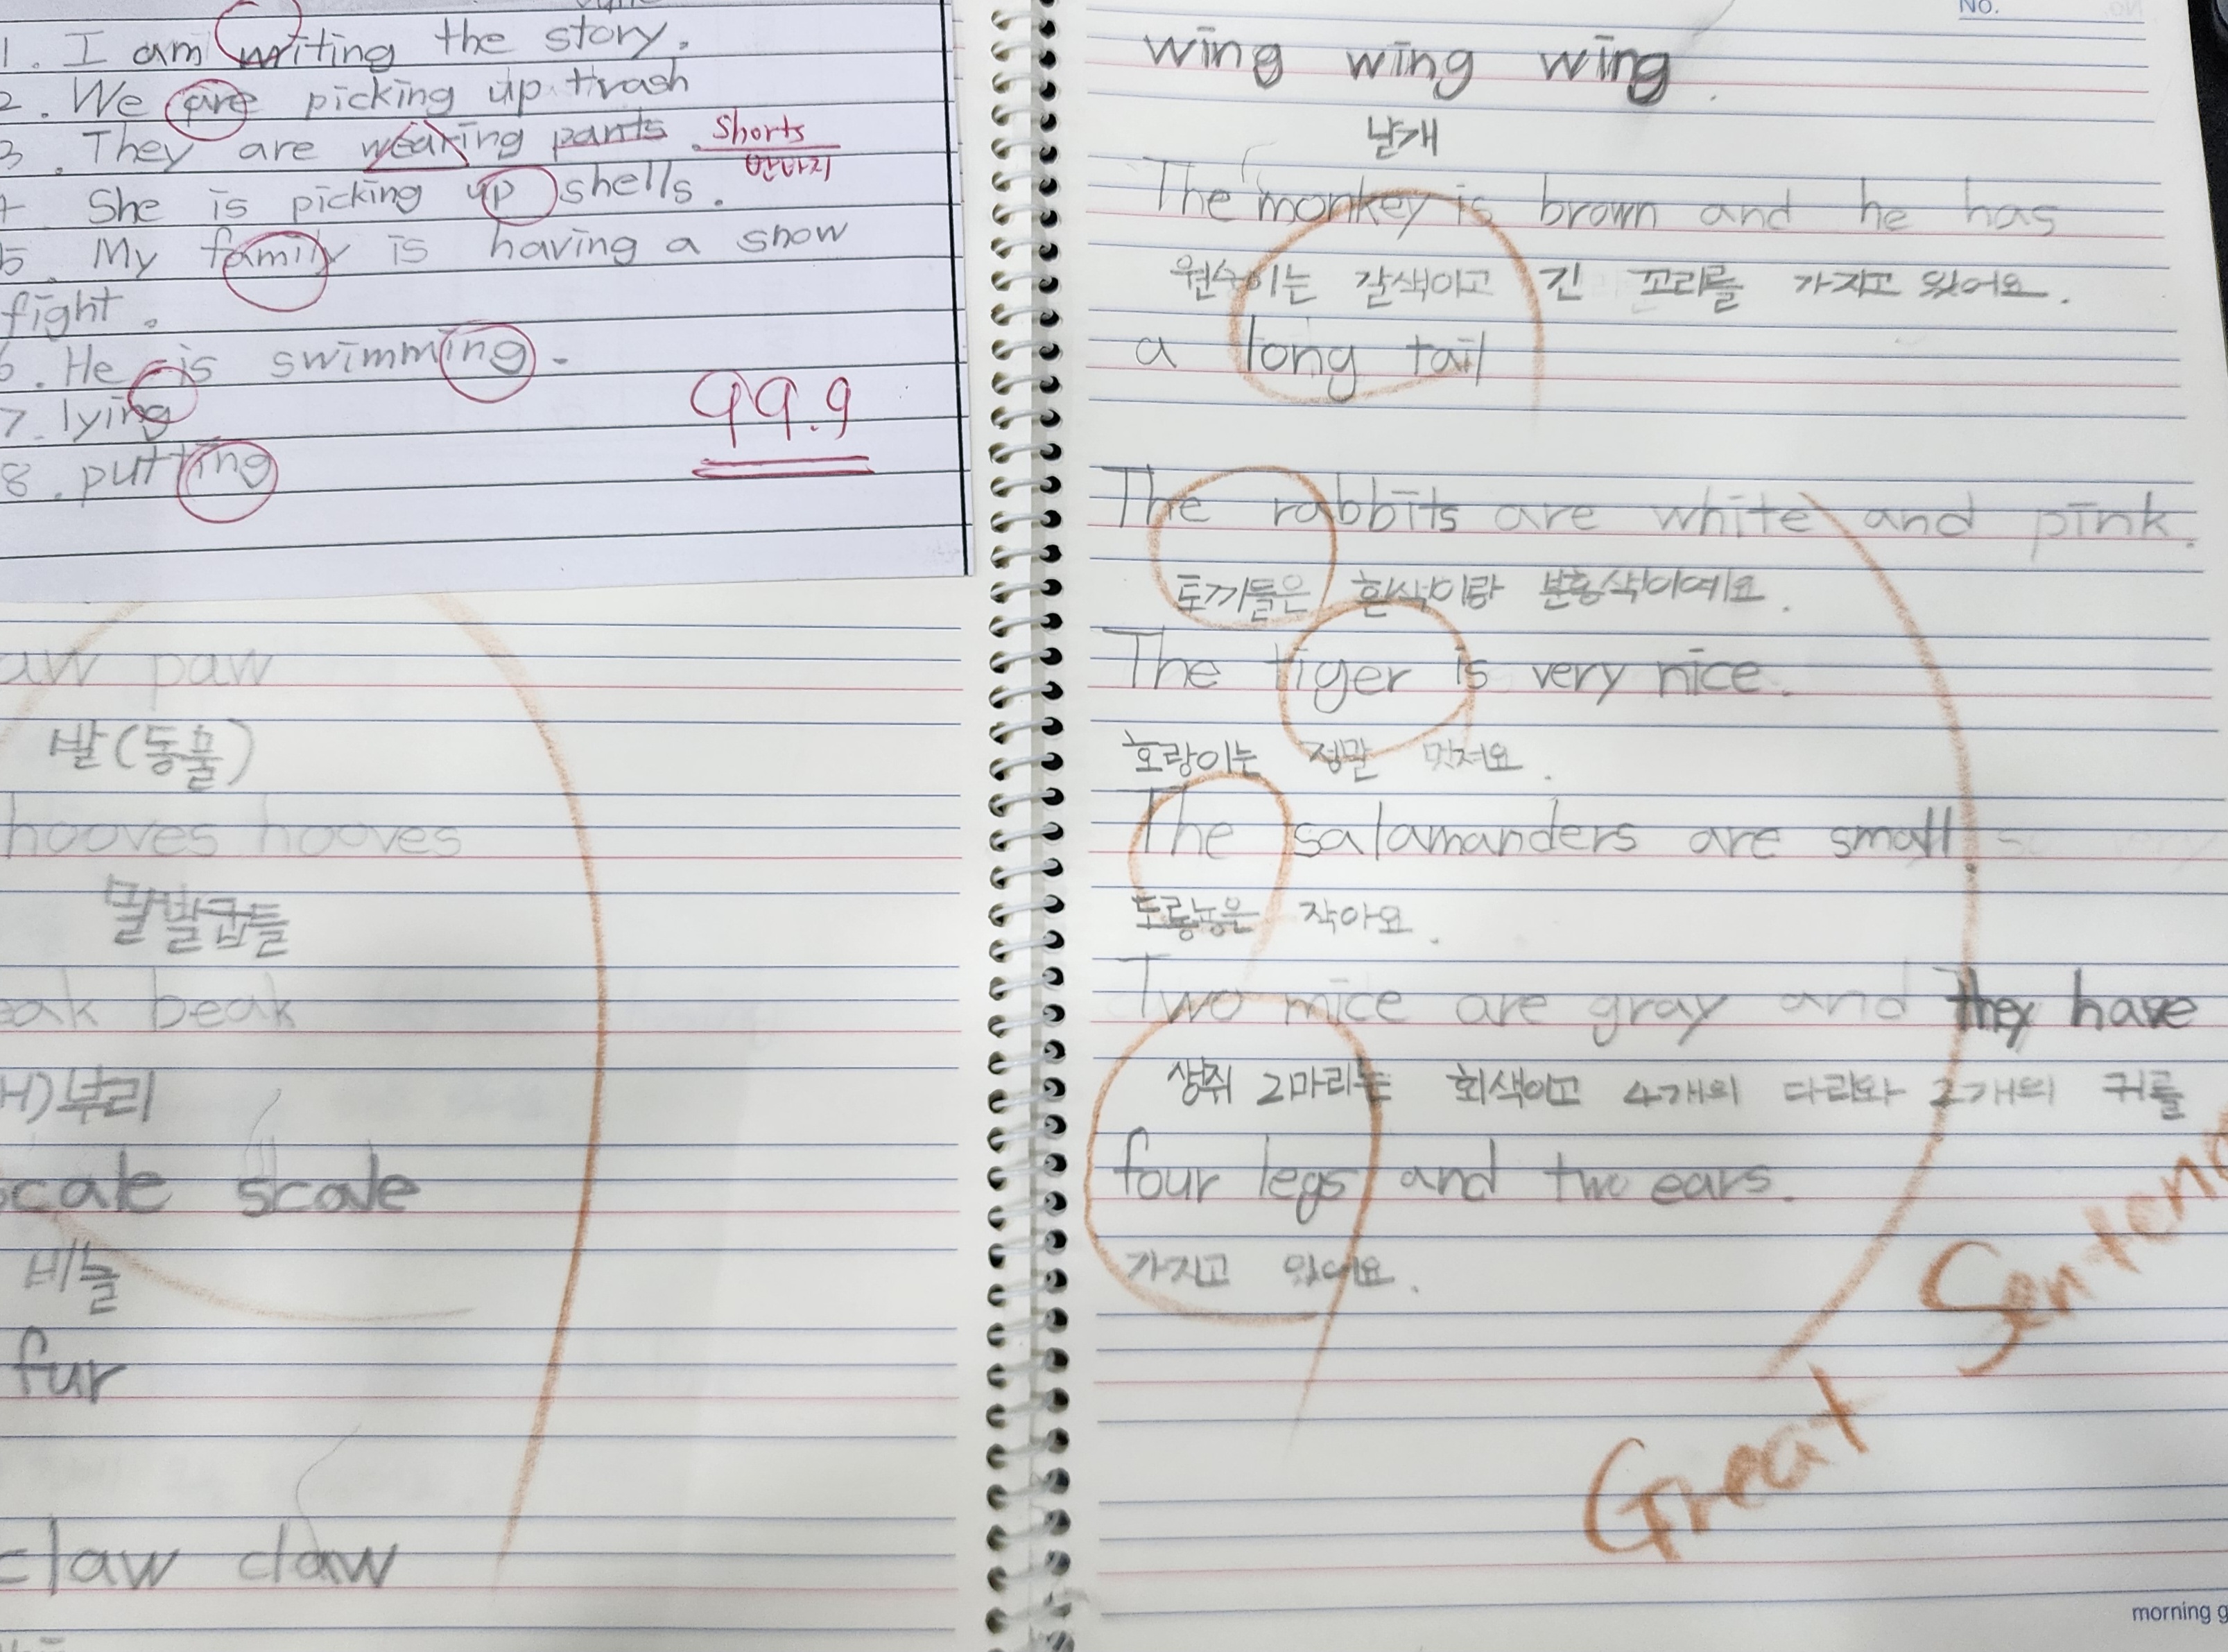 1. I am writing the story.
2. We are picking up trash
3. They are wearing pants. shorts
반바지
4 She is picking up shells.
5. My family is having a snow
fight.
6. He is swimming.
7. lying
8. putting
99.9
aw paw
발(동물)
hooves hooves
말발굽들
eak beak
부리
scale scale
비늘
fur
claw claw
No.
wing wing wing
날개
The monkey is brown and he has
원숭이는 갈색이고 긴 꼬리를 가지고 있어요.
a long tail
The rabbits are white and pink.
토끼들은 흰색이랑 분홍색이예요.
The tiger is very nice.
호랑이는 정말 멋져요.
The salamanders are small.
도롱뇽은 작아요.
Two mice are gray and they have
생쥐 2마리는 회색이고 4개의 다리와 2개의 귀를
four legs and two ears.
가지고 있어요.
Great Senten
morning g